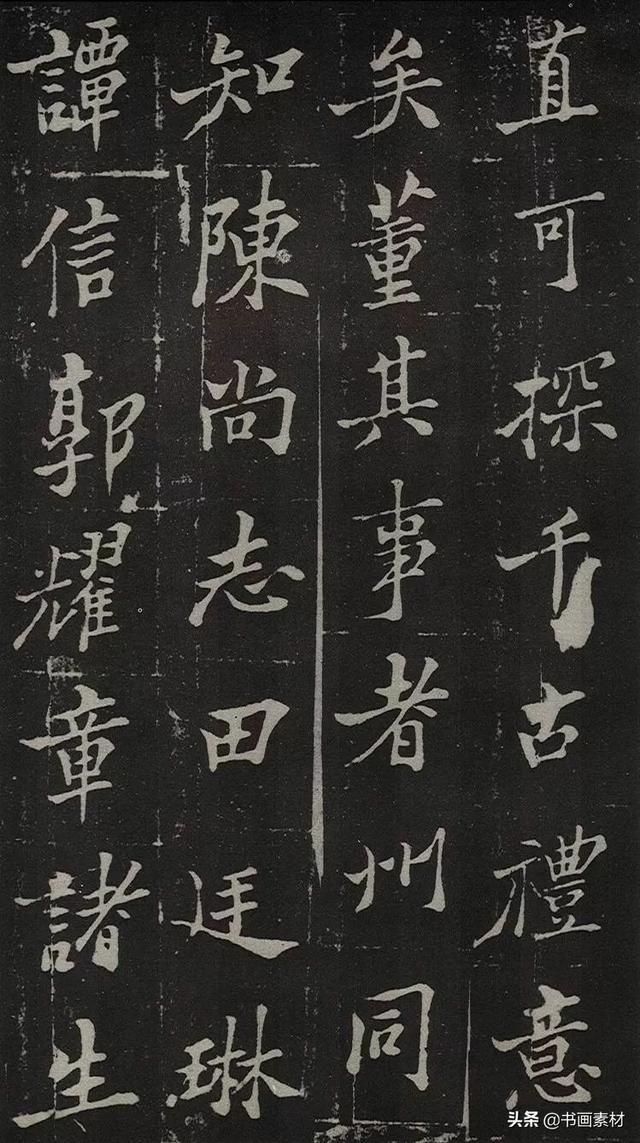 直可探千古禮意
矣董其事者州同
知陳尚志田廷琳
譚信郭耀章諸生
头条@书画素材